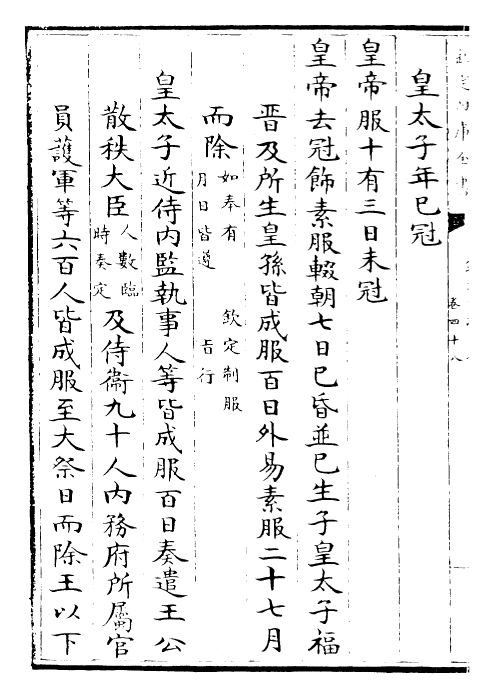 皇太子年已冠
皇帝服十有三日未冠
皇帝去冠飾素服輟朝七日已昏並已生子皇太子福
晉及所生皇孫皆成服百日外易素服二十七月
而除如奉有欽定制服月日皆遵旨行
皇太子近侍內監執事人等皆成服百日奏遣王公
散秩大臣人數臨時奏定及侍衞九十人內務府所屬官
員護軍等六百人皆成服至大祭日而除王以下
卷四十八